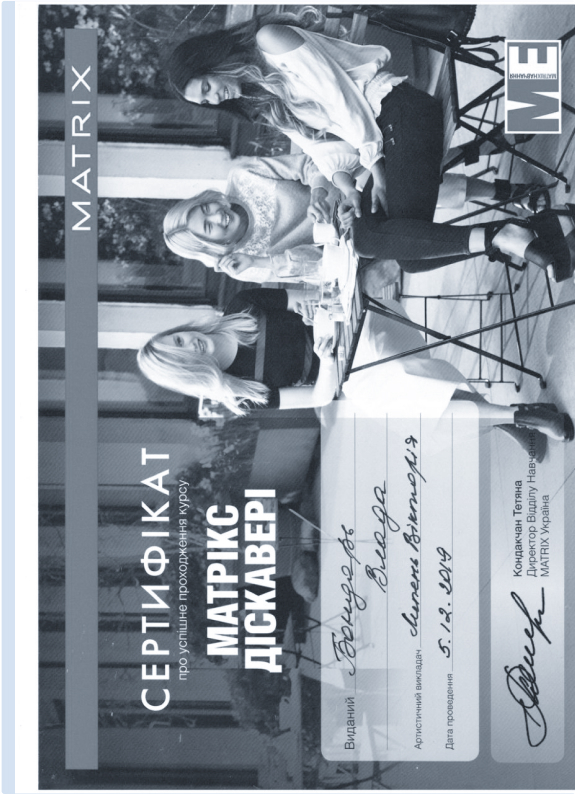 MATRIX
СЕРТИФІКАТ
про успішне проходження курсу
МАТРІКС
ДІСКАВЕРІ
Виданий Бондарь
Влада
Артистичний викладач Вікторія
Дата проведення 5.12.2019
Кондакчан Тетяна
Директор Відділу Навчання
MATRIX Україна
ME